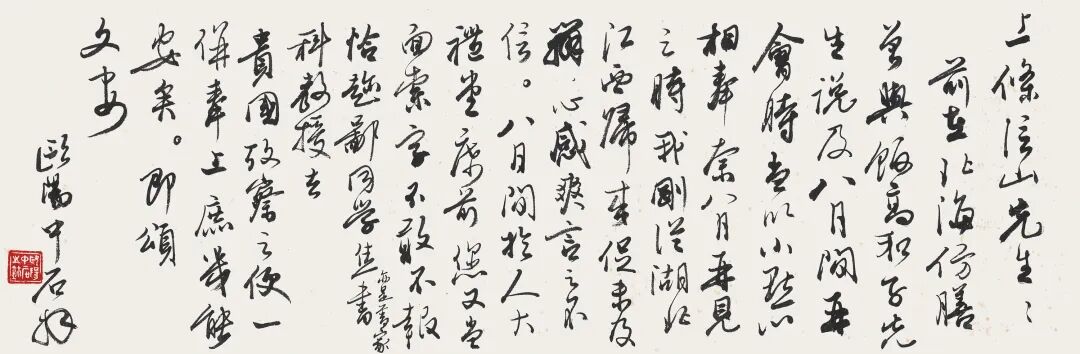 上條信山先生：
前在北海仿膳
曾與飯高和子先
生説及八月間再
會時當以小點心
相奉奈八月再見
之時我剛從湖北
江西歸來促未及
辦心感爽言之不
信。八月間於人大
禮堂席前您又當
面索字不敢不報
恰趁鄙同學焦
亦是書家
科教授去
貴國攷察之便一
併奉上庶幾能
安矣。即頌
文安
歐陽中石拜